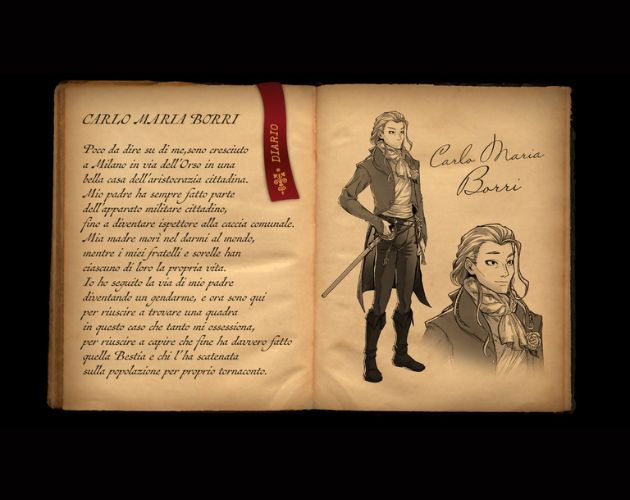 CARLO MARIA BORRI
Poco da dire su di me,sono cresciuto
a Milano in via dell'Orso in una
bella casa dell'aristocrazia cittadina.
Mio padre ha sempre fatto parte
dell'apparato militare cittadino,
fino a diventare ispettore alla caccia comunale.
Mia madre morì nel darmi al mondo,
mentre i miei fratelli e sorelle han
ciascuno di loro la propria vita.
Io ho seguito la via di mio padre
diventando un gendarme, e ora sono qui
per riuscire a trovare una quadra
in questo caso che tanto mi ossessiona,
per riuscire a capire che fine ha davvero fatto
quella Bestia e chi l'ha scatenata
sulla popolazione per proprio tornaconto.
DIARIO
Carlo Maria
Borri